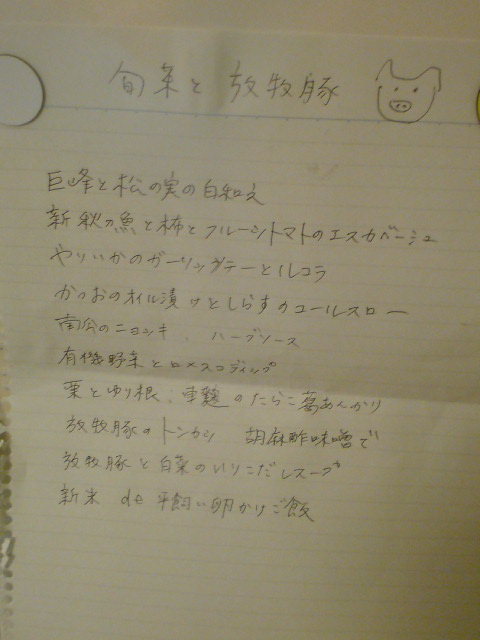 旬菜と放牧豚
巨峰と松の実の白和え
新秋刀魚と柿とフルーツトマトのエスカベーシュ
やりいかのガーリックソテーとルッコラ
かつおのオイル漬けとしらすのコールスロー
南瓜のニョッキ、ハーブソース
有機野菜とロメスコディップ
栗とゆり根、車麩のたらこ葛あんかけ
放牧豚のトンカツ 胡麻酢味噌で
放牧豚と白菜のいりこだしスープ
新米 de 平飼い卵かけご飯